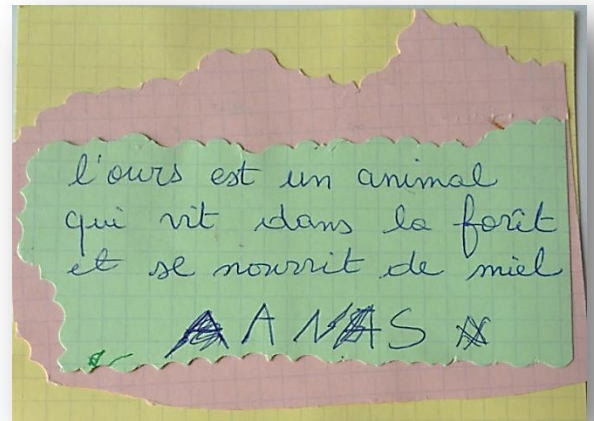 l'ours est un animal
qui vit dans la forêt
et se nourrit de miel
ANAS